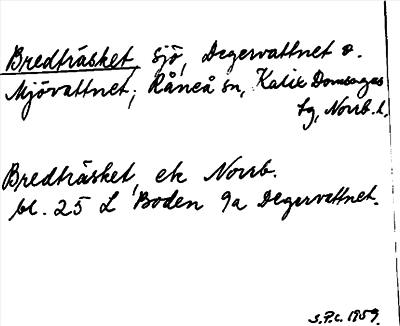 Bredträsket, sjö, Degervattnet o.
Mjövattnet, Råneå sn, Kalix Domsagas
tg, Norrb. l.
Bredträsket, ek Norrb.
bl. 25 L Boden 9a Degervattnet.
S.P.C. 1959